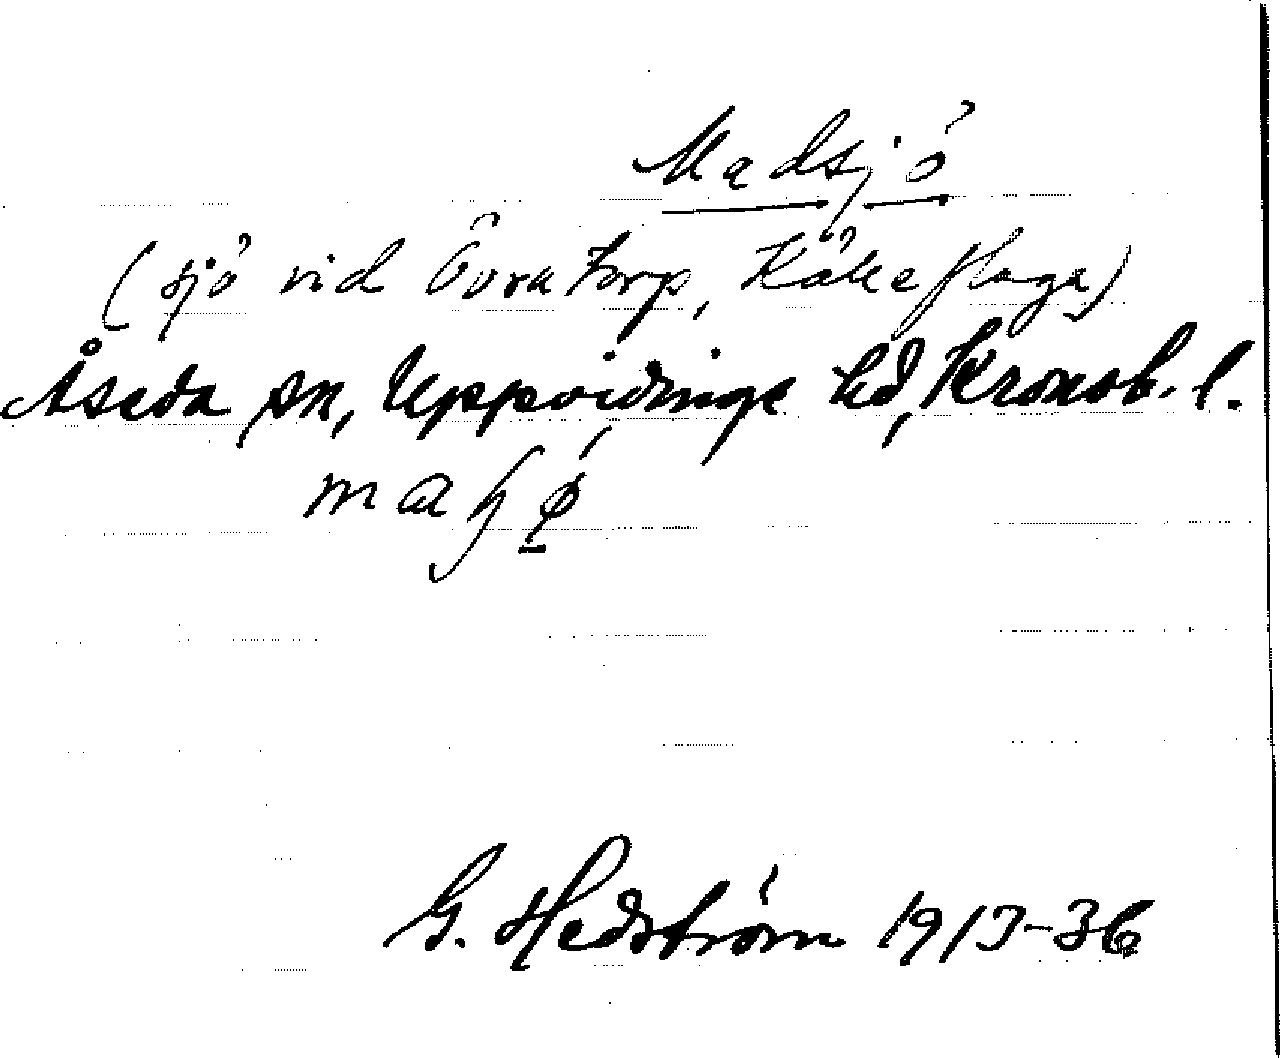 Madsjö
(sjö vid Övra Torp, Kökeflaga)
Åseda sn, Uppvidinge hd, Kronob. l.
G. Hedström 1913-36